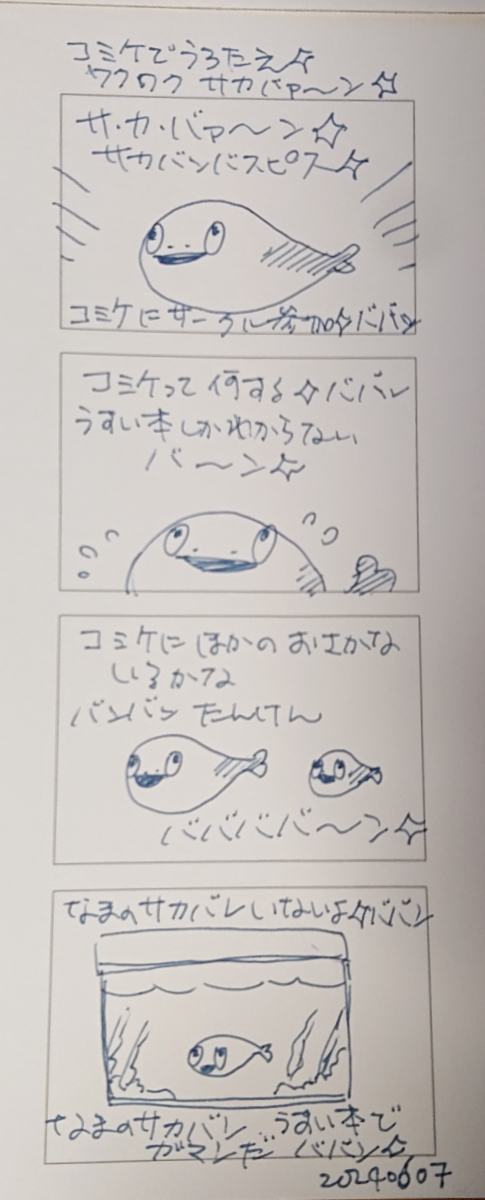 コミケでうろたえ☆
ワクワク サカバァ〜ン☆
サ・カ・バァ〜ン☆
サカバンバスピス☆
コミケにサークル参加☆ババン
コミケって何する☆ババン
うすい本しかわからない
バ〜ン☆
コミケにほかのおさかな
いるかな
バンバン たんけん
ババババ〜ン☆
なまのサカバンいないよ☆ババン
なまのサカバン うすい本で
ガマンだ ババン☆
20240607